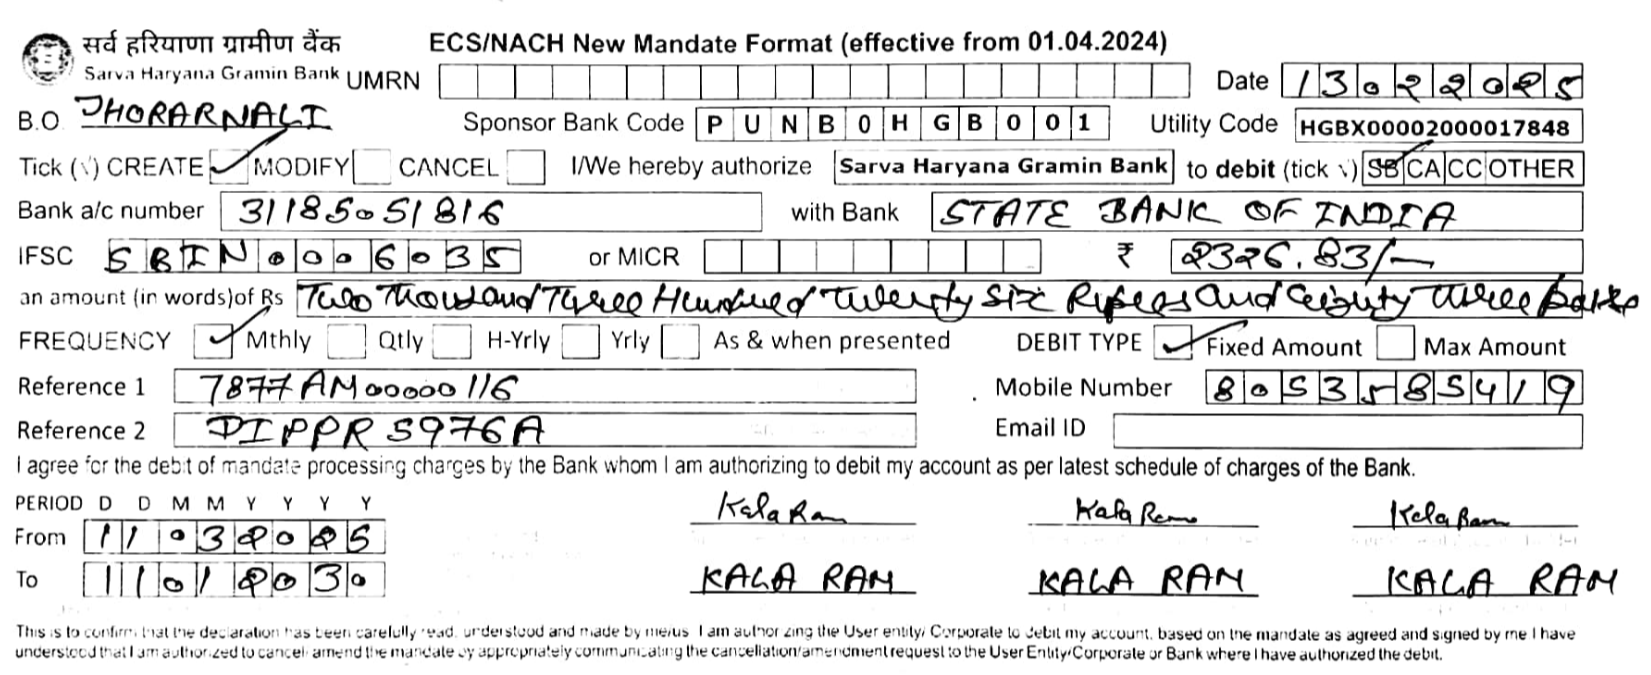 सर्व हरियाणा ग्रामीण बैंक ECS/NACH New Mandate Format (effective from 01.04.2024)
Sarva Haryana Gramin Bank UMRN Date 13022025
B.O. JHORARNALI Sponsor Bank Code PUNB0HGB001 Utility Code HGBX00002000017848
Tick (√) CREATE ✓ MODIFY CANCEL I/We hereby authorize Sarva Haryana Gramin Bank to debit (tick √) SB CA CC OTHER
Bank a/c number 31185051816 with Bank STATE BANK OF INDIA
IFSC SBIN0006035 or MICR ₹ 2326.83/-
an amount (in words)of Rs Two Thousand Three Hundred Twenty Six Rupees and Eighty Three
FREQUENCY ✓ Mthly Qtly H-Yrly Yrly As & when presented DEBIT TYPE ✓ Fixed Amount Max Amount
Reference 1 7877AM00000116 Mobile Number 8053585419
Reference 2 DIPPR5976A Email ID
I agree for the debit of mandate processing charges by the Bank whom I am authorizing to debit my account as per latest schedule of charges of the Bank.
PERIOD D D M M Y Y Y Y
From 11032025 Kala Ram Kala Ram Kala Ram
To 11012030 KALA RAM KALA RAM KALA RAM
This is to confirm that the declaration has been carefully read, understood and made by me/us. I am authorizing the User entity/ Corporate to debit my account, based on the mandate as agreed and signed by me I have
understood that I am authorized to cancel/ amend the mandate by appropriately communicating the cancellation/amendment request to the User Entity/Corporate or Bank where I have authorized the debit.